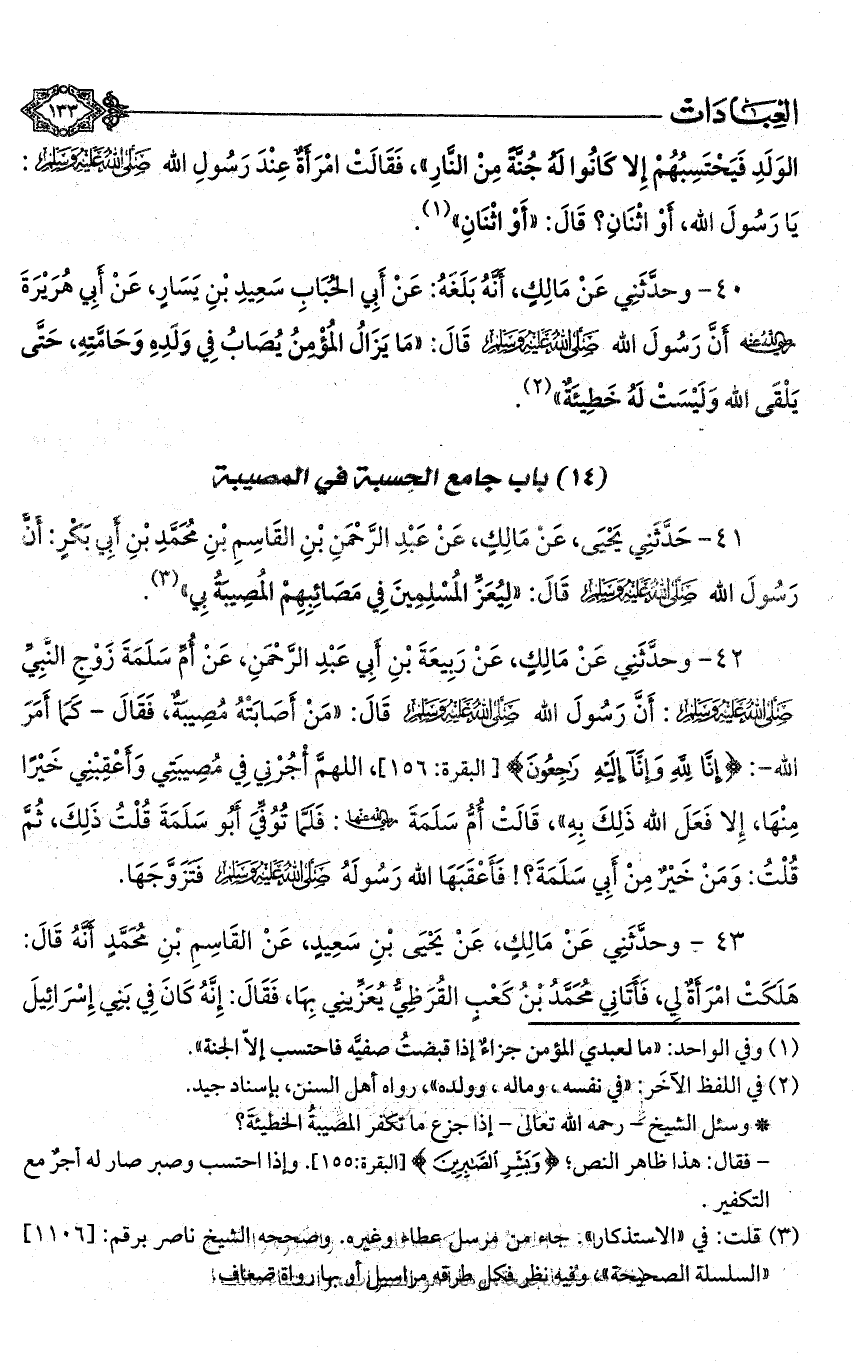 العِبَادَات
١٣٣
الوَلَدِ فَيَحْتَسِبُهُمْ إِلا كَانُوا لَهُ جُنَّةً مِنْ النَّارِ»، فَقَالَتْ امْرَأَةٌ عِنْدَ رَسُولِ الله صَلَّى اللهُ عَلَيْهِ وَسَلَّمَ :
يَا رَسُولَ الله، أَوْ اثْنَانِ؟ قَالَ: «أَوْ اثْنَانِ»(١).
٤٠- وحدَّثَنِي عَنْ مَالِكٍ، أَنَّهُ بَلَغَهُ: عَنْ أَبِي الحُبَابِ سَعِيدِ بْنِ يَسَارٍ، عَنْ أَبِي هُرَيْرَةَ
رضي الله عنه أَنَّ رَسُولَ الله صَلَّى اللهُ عَلَيْهِ وَسَلَّمَ قَالَ: «مَا يَزَالُ المُؤْمِنُ يُصَابُ فِي وَلَدِهِ وَحَامَّتِهِ، حَتَّى
يَلْقَى الله وَلَيْسَتْ لَهُ خَطِيئَةٌ»(٢).
(١٤) باب جامع الحسبة في المصيبة
٤١- حَدَّثَنِي يَحْيَى، عَنْ مَالِكٍ، عَنْ عَبْدِ الرَّحْمَنِ بْنِ القَاسِمِ بْنِ مُحَمَّدِ بْنِ أَبِي بَكْرٍ: أَنَّ
رَسُولَ الله صَلَّى اللهُ عَلَيْهِ وَسَلَّمَ قَالَ: «لِيُعَزِّ المُسْلِمِينَ فِي مَصَائِبِهِمْ المُصِيبَةُ بِي»(٣).
٤٢- وحدَّثَنِي عَنْ مَالِكٍ، عَنْ رَبِيعَةَ بْنِ أَبِي عَبْدِ الرَّحْمَنِ، عَنْ أُمِّ سَلَمَةَ زَوْجِ النَّبِيِّ
صَلَّى اللهُ عَلَيْهِ وَسَلَّمَ : أَنَّ رَسُولَ الله صَلَّى اللهُ عَلَيْهِ وَسَلَّمَ قَالَ: «مَنْ أَصَابَتْهُ مُصِيبَةٌ، فَقَالَ – كَمَا أَمَرَ
الله–: ﴿إِنَّا لِلَّهِ وَإِنَّآ إِلَيْهِ رَاجِعُونَ﴾ [البقرة: ١٥٦]، اللهمَّ أْجُرْنِي فِي مُصِيبَتِي وَأَعْقِبْنِي خَيْرًا
مِنْهَا، إِلا فَعَلَ الله ذَلِكَ بِهِ»، قَالَتْ أُمُّ سَلَمَةَ رضي الله عنها : فَلَمَّا تُوُفِّيَ أَبُو سَلَمَةَ قُلْتُ ذَلِكَ، ثُمَّ
قُلْتُ: وَمَنْ خَيْرٌ مِنْ أَبِي سَلَمَةَ؟! فَأَعْقَبَهَا الله رَسُولَهُ صَلَّى اللهُ عَلَيْهِ وَسَلَّمَ فَتَزَوَّجَهَا.
٤٣ - وحدَّثَنِي عَنْ مَالِكٍ، عَنْ يَحْيَى بْنِ سَعِيدٍ، عَنْ القَاسِمِ بْنِ مُحَمَّدٍ أَنَّهُ قَالَ:
هَلَكَتْ امْرَأَةٌ لِي، فَأَتَانِي مُحَمَّدُ بْنُ كَعْبٍ القُرَظِيُّ يُعَزِّينِي بِهَا، فَقَالَ: إِنَّهُ كَانَ فِي بَنِي إِسْرَائِيلَ
(١) وفي الواحد: «ما لعبدي المؤمن جزاءٌ إذا قبضتُ صفيَّه فاحتسب إلاّ الجنة».
(٢) في اللفظ الآخَر: «في نفسه، وماله، وولده»، رواه أهل السنن، بإسناد جيد.
* وسئل الشيخ – رحمه الله تعالى – إذا جزع ما تكفر المصيبةُ الخطيئةَ؟
– فقال: هذا ظاهر النص؛ ﴿وَبَشِّرِ الصَّابِرِينَ﴾ [البقرة:١٥٥]. وإذا احتسب وصبر صار له أجرٌ مع
التكفير .
(٣) قلت: في «الاستذكار»: جاء من مرسل عطاء وغيره. وصححه الشيخ ناصر برقم: [١١٠٦]
«السلسلة الصحيحة»، وفيه نظر فكل طرقه مراسيل أو بها رواة ضعاف.